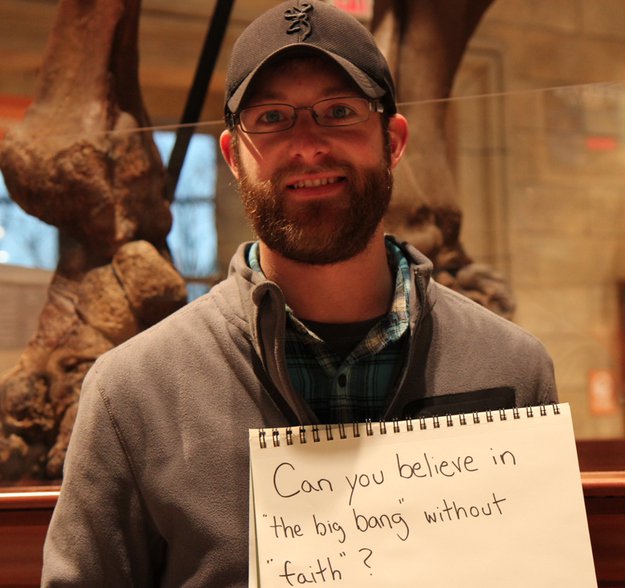 Can you believe in
"the big bang" without
"faith"?